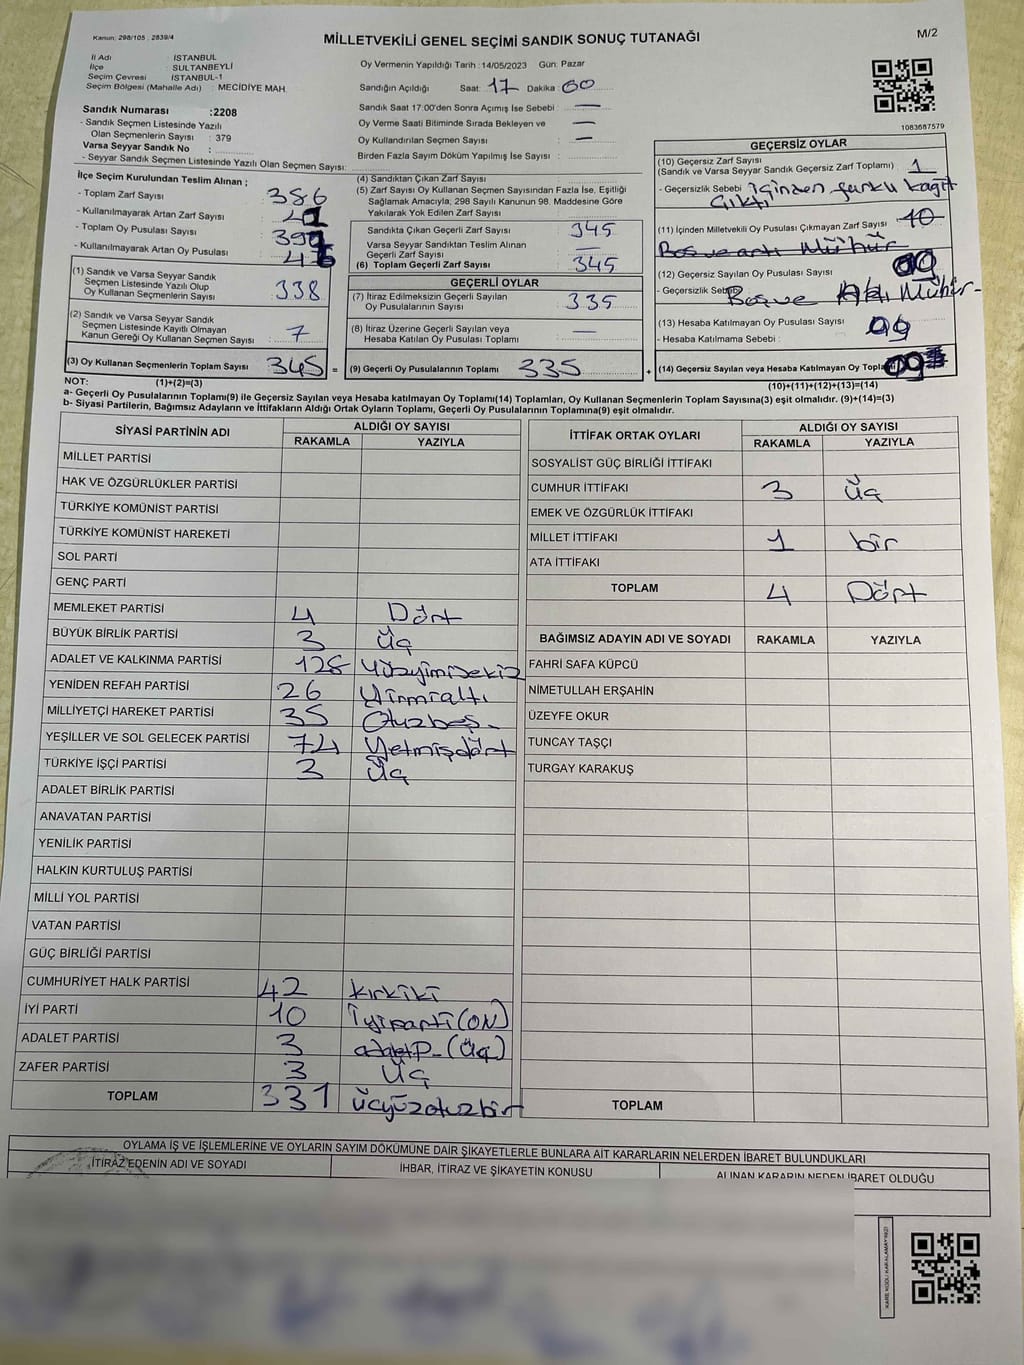 Kanun: 298/105 , 2839/4
MİLLETVEKİLİ GENEL SEÇİMİ SANDIK SONUÇ TUTANAĞI
M/2
İl Adı : İSTANBUL
İlçe : SULTANBEYLİ
Seçim Çevresi : İSTANBUL-1
Seçim Bölgesi (Mahalle Adı) : MECİDİYE MAH.
Sandık Numarası :2208
- Sandık Seçmen Listesinde Yazılı
Olan Seçmenlerin Sayısı : 379
Varsa Seyyar Sandık No :
- Seyyar Sandık Seçmen Listesinde Yazılı Olan Seçmen Sayısı:
Oy Vermenin Yapıldığı Tarih :14/05/2023 Gün: Pazar
Sandığın Açıldığı Saat: 17 Dakika: 00
Sandık Saat 17:00'den Sonra Açımış İse Sebebi : —
Oy Verme Saati Bitiminde Sırada Bekleyen ve —
Oy Kullandırılan Seçmen Sayısı : —
Birden Fazla Sayım Döküm Yapılmış İse Sayısı :
1083687579
İlçe Seçim Kurulundan Teslim Alınan ;
- Toplam Zarf Sayısı : 386
- Kullanılmayarak Artan Zarf Sayısı :
- Toplam Oy Pusulası Sayısı :
- Kullanılmayarak Artan Oy Pusulası :
(1) Sandık ve Varsa Seyyar Sandık
Seçmen Listesinde Yazılı Olup
Oy Kullanan Seçmenlerin Sayısı : 338
(2) Sandık ve Varsa Seyyar Sandık
Seçmen Listesinde Kayıtlı Olmayan
Kanun Gereği Oy Kullanan Seçmen Sayısı : 7
(3) Oy Kullanan Seçmenlerin Toplam Sayısı 345 =
(4) Sandıktan Çıkan Zarf Sayısı :
(5) Zarf Sayısı Oy Kullanan Seçmen Sayısından Fazla İse, Eşitliği
Sağlamak Amacıyla, 298 Sayılı Kanunun 98. Maddesine Göre
Yakılarak Yok Edilen Zarf Sayısı :
Sandıkta Çıkan Geçerli Zarf Sayısı : 345
Varsa Seyyar Sandıktan Teslim Alınan
Geçerli Zarf Sayısı : —
(6) Toplam Geçerli Zarf Sayısı : 345
GEÇERLİ OYLAR
(7) İtiraz Edilmeksizin Geçerli Sayılan
Oy Pusulalarının Sayısı : 335
(8) İtiraz Üzerine Geçerli Sayılan veya
Hesaba Katılan Oy Pusulası Toplamı : —
(9) Geçerli Oy Pusulalarının Toplamı 335 +
GEÇERSİZ OYLAR
(10) Geçersiz Zarf Sayısı
(Sandık ve Varsa Seyyar Sandık Geçersiz Zarf Toplamı) : 1
- Geçersizlik Sebebi : içinden farklı kağıt
çıktı
(11) İçinden Milletvekili Oy Pusulası Çıkmayan Zarf Sayısı : 10
(12) Geçersiz Sayılan Oy Pusulası Sayısı :
- Geçersizlik Sebebi : Boş ve Mühür-
(13) Hesaba Katılmayan Oy Pusulası Sayısı :
- Hesaba Katılmama Sebebi :
(14) Geçersiz Sayılan veya Hesaba Katılmayan Oy Toplamı
NOT: (1)+(2)=(3)
(10)+(11)+(12)+(13)=(14)
a- Geçerli Oy Pusulalarının Toplamı(9) ile Geçersiz Sayılan veya Hesaba katılmayan Oy Toplamı(14) Toplamları, Oy Kullanan Seçmenlerin Toplam Sayısına(3) eşit olmalıdır. (9)+(14)=(3)
b- Siyasi Partilerin, Bağımsız Adayların ve İttifakların Aldığı Ortak Oyların Toplamı, Geçerli Oy Pusulalarının Toplamına(9) eşit olmalıdır.
SİYASİ PARTİNİN ADI
ALDIĞI OY SAYISI
RAKAMLA YAZIYLA
MİLLET PARTİSİ
HAK VE ÖZGÜRLÜKLER PARTİSİ
TÜRKİYE KOMÜNİST PARTİSİ
TÜRKİYE KOMÜNİST HAREKETİ
SOL PARTİ
GENÇ PARTİ
MEMLEKET PARTİSİ 4 Dört
BÜYÜK BİRLİK PARTİSİ 3 Üç
ADALET VE KALKINMA PARTİSİ 128 Yüzyirmisekiz
YENİDEN REFAH PARTİSİ 26 Yirmialtı
MİLLİYETÇİ HAREKET PARTİSİ 35 Otuzbeş
YEŞİLLER VE SOL GELECEK PARTİSİ 74 Yetmişdört
TÜRKİYE İŞÇİ PARTİSİ 3 Üç
ADALET BİRLİK PARTİSİ
ANAVATAN PARTİSİ
YENİLİK PARTİSİ
HALKIN KURTULUŞ PARTİSİ
MİLLİ YOL PARTİSİ
VATAN PARTİSİ
GÜÇ BİRLİĞİ PARTİSİ
CUMHURİYET HALK PARTİSİ 42 kırkiki
İYİ PARTİ 10 İyi parti (ON)
ADALET PARTİSİ 3 adalet P- (Üç)
ZAFER PARTİSİ 3 Üç
TOPLAM 331 üçyüzotuzbir
İTTİFAK ORTAK OYLARI
ALDIĞI OY SAYISI
RAKAMLA YAZIYLA
SOSYALİST GÜÇ BİRLİĞİ İTTİFAKI
CUMHUR İTTİFAKI 3 Üç
EMEK VE ÖZGÜRLÜK İTTİFAKI
MİLLET İTTİFAKI 1 bir
ATA İTTİFAKI
TOPLAM 4 Dört
BAĞIMSIZ ADAYIN ADI VE SOYADI RAKAMLA YAZIYLA
FAHRİ SAFA KÜPCÜ
NİMETULLAH ERŞAHİN
ÜZEYFE OKUR
TUNCAY TAŞÇI
TURGAY KARAKUŞ
TOPLAM
OYLAMA İŞ VE İŞLEMLERİNE VE OYLARIN SAYIM DÖKÜMÜNE DAİR ŞİKAYETLERLE BUNLARA AİT KARARLARIN NELERDEN İBARET BULUNDUKLARI
İTİRAZ EDENİN ADI VE SOYADI
İHBAR, İTİRAZ VE ŞİKAYETİN KONUSU
ALINAN KARARIN NEDEN İBARET OLDUĞU